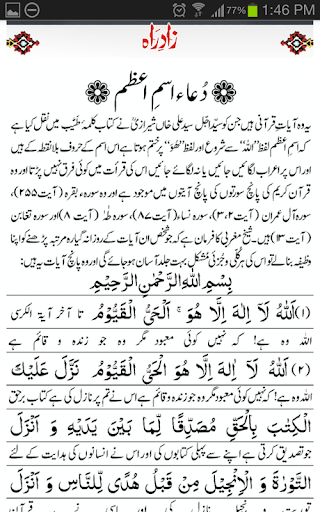 77% 1:46 PM
زادِ راہ
دُعاء اسمِ اعظم
یہ وہ آیاتِ قرآنی ہیں جن کو سیّد اجل سیّد علی خاں شیرازیؒ نے کتاب کلمۂ طیّب میں نقل کیا ہے
کہ اسمِ اعظم لفظ "اللہ" سے شروع اور لفظ "ھُو" پر ختم ہوتا ہے اس اسم کے حروف بلا نقط کے ہیں
اور اس پر اعراب لگائیں جائیں یا نہ لگائے جائیں اس کی قرأت میں کوئی فرق نہیں پڑتا اور وہ
قرآن کریم کی پانچ سورتوں کی پانچ آیتوں میں موجود ہے اور وہ سورہ، بقرہ (آیت ۲۵۵)،
سورہ آل عمران (آیت ۲،۳)، سورہ نساء، (آیت ۸۷)، سورہ طہٰ (آیت ۸) اور سورہ تغابن
(آیت ۱۳) ہیں۔ شیخ مغربی کا فرمان ہے کہ جو شخص ان آیات کے روزانہ گیارہ مرتبہ پڑھنے کو اپنا
وظیفہ بنالے تو اس کی ہر کُلّی و جُزئی مشکل بہت جلد آسان ہو جائے گی اور وہ پانچ آیات یہ ہیں:
بِسْمِ اللهِ الرَّحْمٰنِ الرَّحِیْمِ
(۱) اَللهُ لَآ اِلٰهَ اِلَّا هُوَ ۚ اَلْحَیُّ الْقَیُّوْمُ تا آخر آیۃ الکرسی
اللہ وہ ہے! کہ نہیں کوئی معبود مگر وہ جو زندہ و قائم ہے
(۲) اَللهُ لَآ اِلٰهَ اِلَّا هُوَ الْحَیُّ الْقَیُّوْمُ نَزَّلَ عَلَیْكَ
اللہ وہ ہے! کہ نہیں کوئی معبود مگر وہ جو زندہ و قائم ہے اس نے تم پر نازل کی ہے کتاب برحق
الْكِتٰبَ بِالْحَقِّ مُصَدِّقًا لِّمَا بَیْنَ یَدَیْهِ وَ اَنْزَلَ
جو تصدیق کرتی ہے اپنے سے پہلی کتابوں کی اور اس نے انسانوں کی ہدایت کے لئے
التَّوْرٰةَ وَ الْاِنْجِیْلَ مِنْ قَبْلُ هُدًی لِّلنَّاسِ وَ اَنْزَلَ